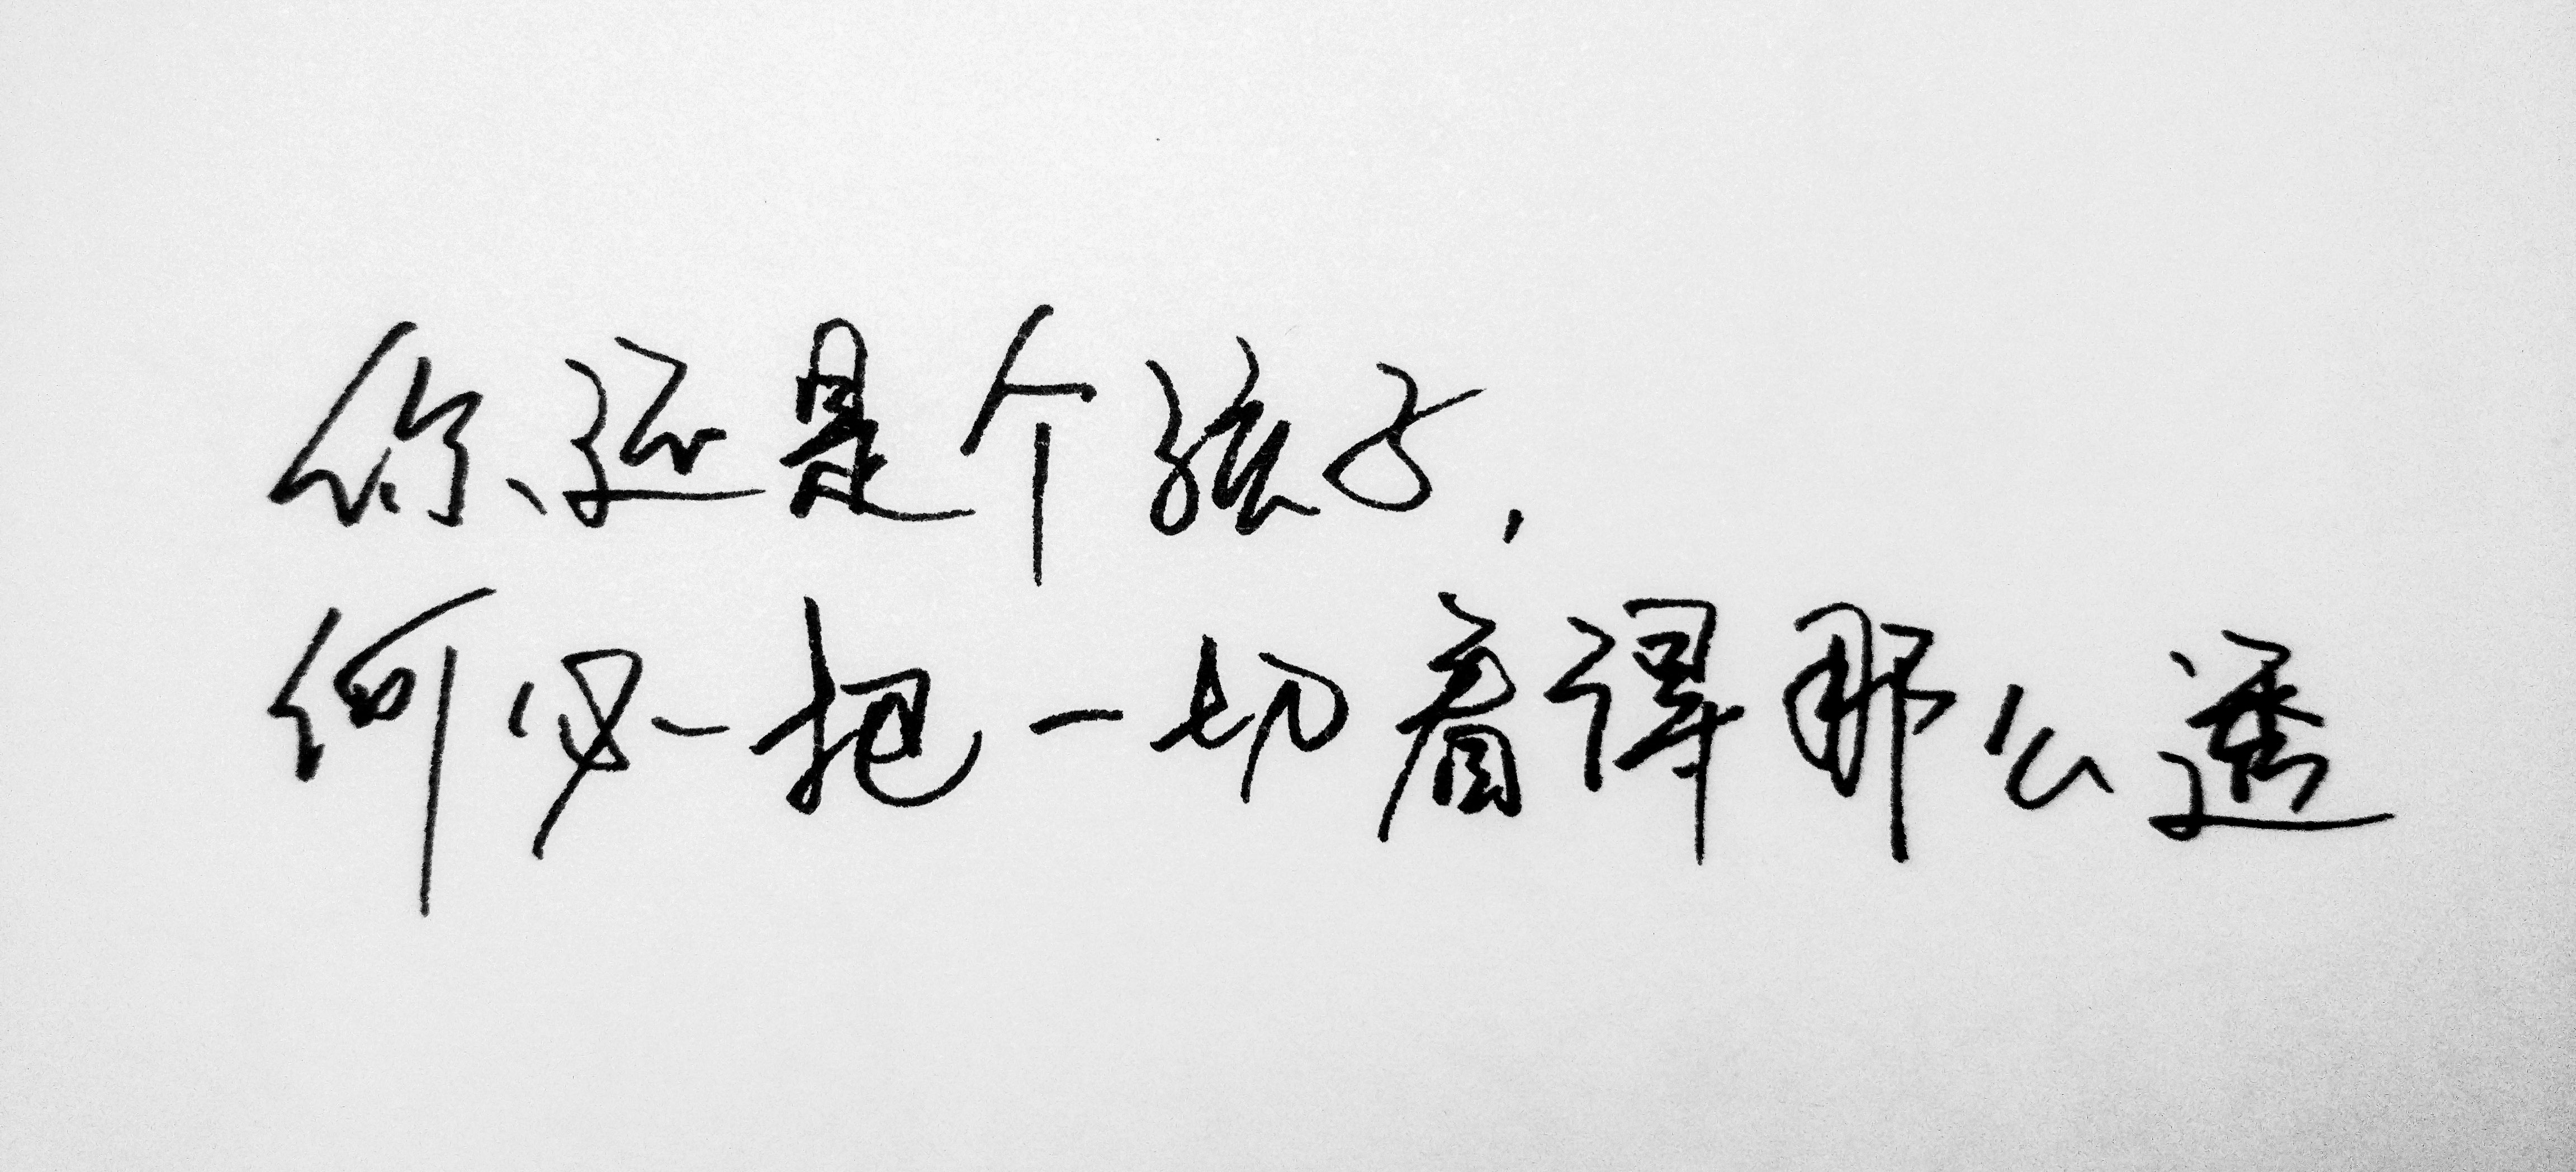 你还是个孩子，
何必把一切看得那么透